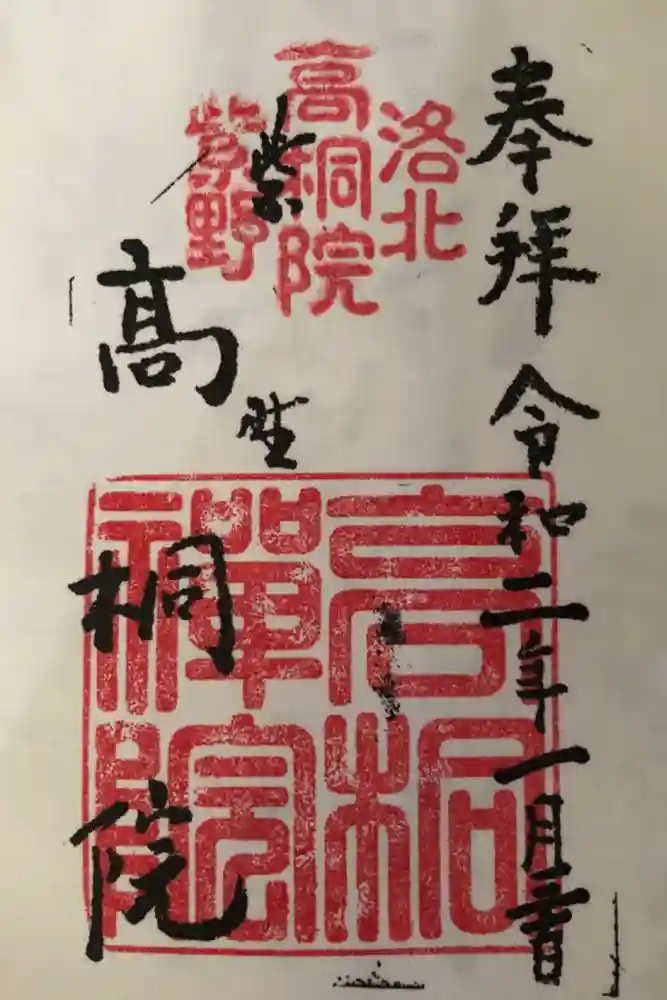 奉拝 令和二年一月吉日
洛北
高桐院
紫野
紫野
高桐院
高桐禅院